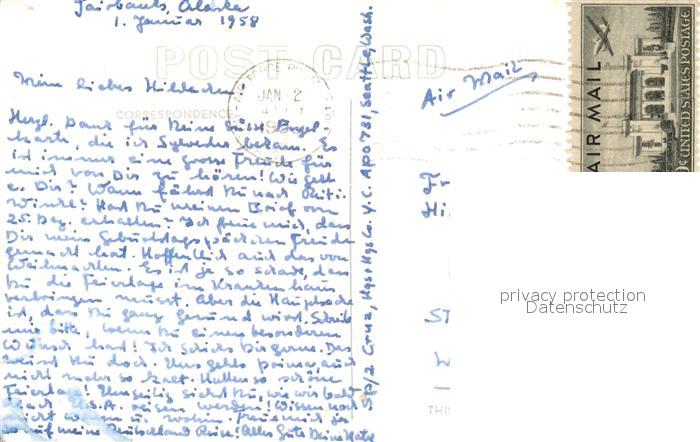 Fairbanks, Alaska
1. Januar 1958
POST CARD
Mein liebes Hildchen
JAN 2
CORRESPONDENCE
Air Mail
AIR MAIL
UNITED STATES POSTAGE
Herzl. Dank für Deine süsse Engel-
karte, die ich Sylvester bekam. Es
ist immer eine grosse Freude für
mich von Dir zu hören! Wie geht
es Dir? Wann fährst Du nach Reit i.
Winkl? Hast Du meinen Brief vom
25. Dez. erhalten? Ich freue mich, dass
Dir mein Geburtstagspäckchen Freude
gemacht hat. Hoffentlich auch das von
Weihnachten. Es ist ja so schade, dass
Du die Feiertage im Krankenhaus
verbringen musst. Aber die Hauptsache
ist, dass Du ganz gesund wirst. Schreib
mir bitte, wenn Du einen besonderen
Wunsch hast! Ich schicks Dir gerne. Das
weisst Du doch. Uns gehts prima, auch
nicht mehr so kalt. Hatten so schöne
Feiertage! wie wir bald
nach U.S.A. reisen werden! Wissen noch
nicht wann u. wohin. Freue mich ja
so auf meine Deutschland Reise! Alles Gute Deine
Sp/2 Cruz, Hqs+Hqs Co. Y.C. APO 731, Seattle, Wash.
Fr
Hi
ST
W
THI
privacy protection
Datenschutz